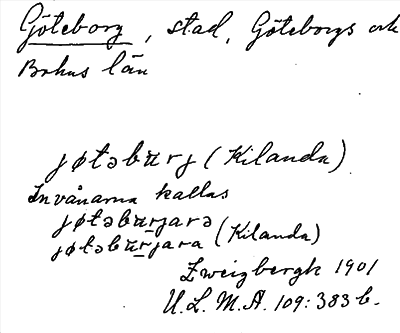 Göteborg, stad, Göteborgs och
Bohus län
jøtəburj (Kilanda)
Invånarna kallas
jøtəburjarə
jøtəburjara (Kilanda)
Zweigbergk 1901
U.L.M.A. 109:383 b.